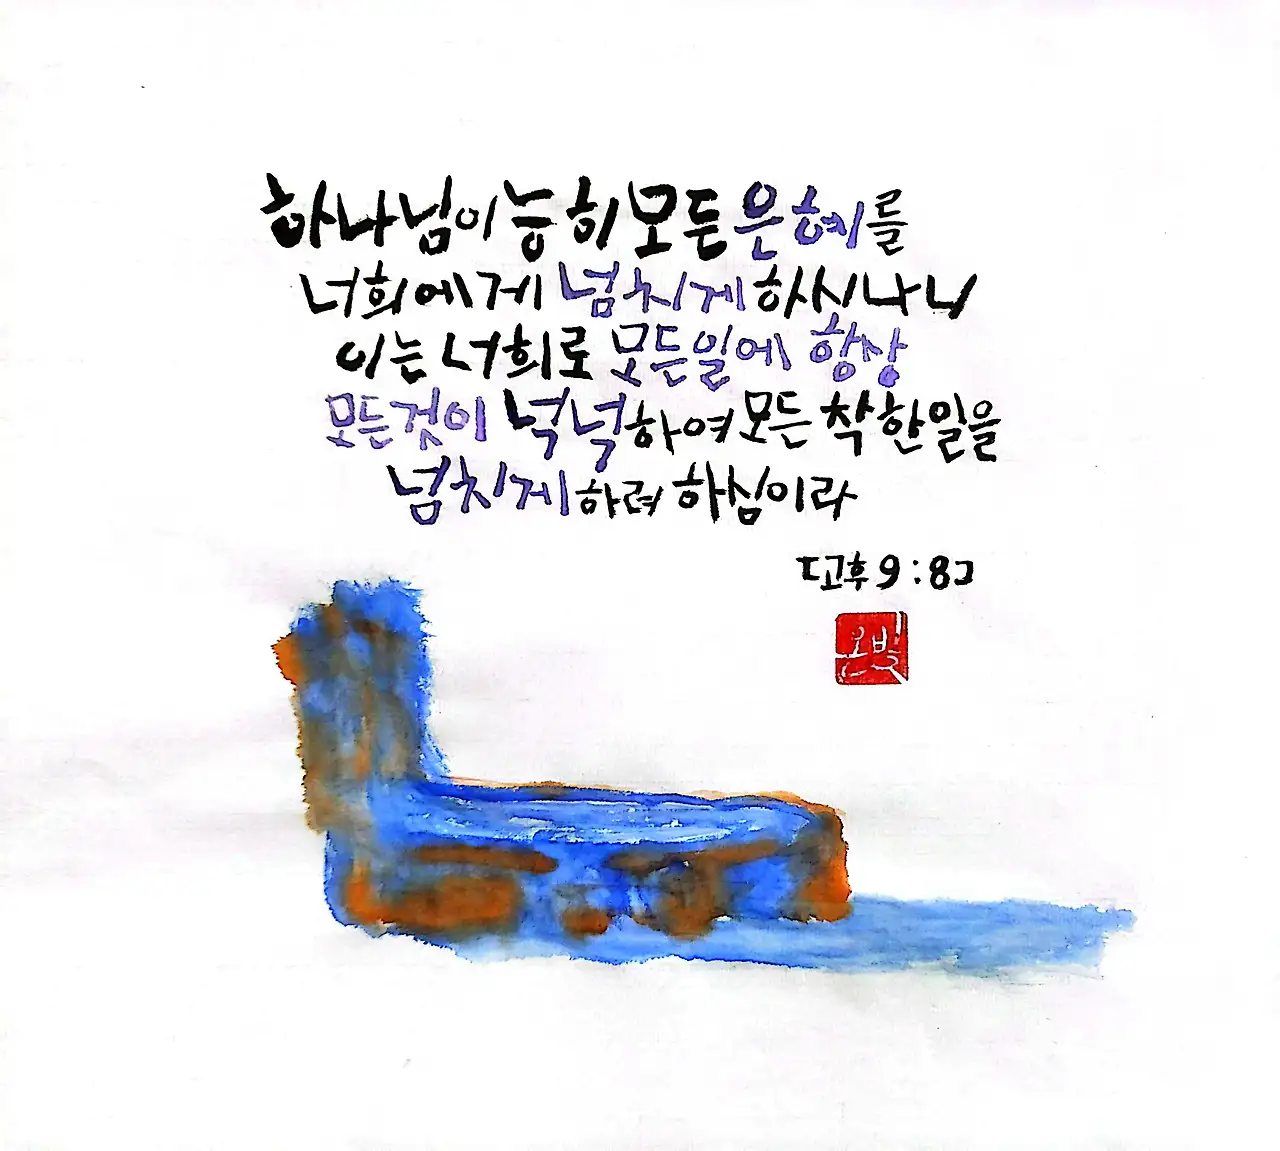 하나님이 능히 모든 은혜를
너희에게 넘치게 하시나니
이는 너희로 모든 일에 항상
모든 것이 넉넉하여 모든 착한 일을
넘치게 하려 하심이라
[고후 9:8]
온빛